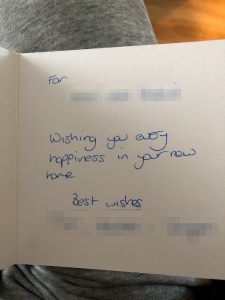 For
Wishing you every
happiness in your new
home
Best wishes